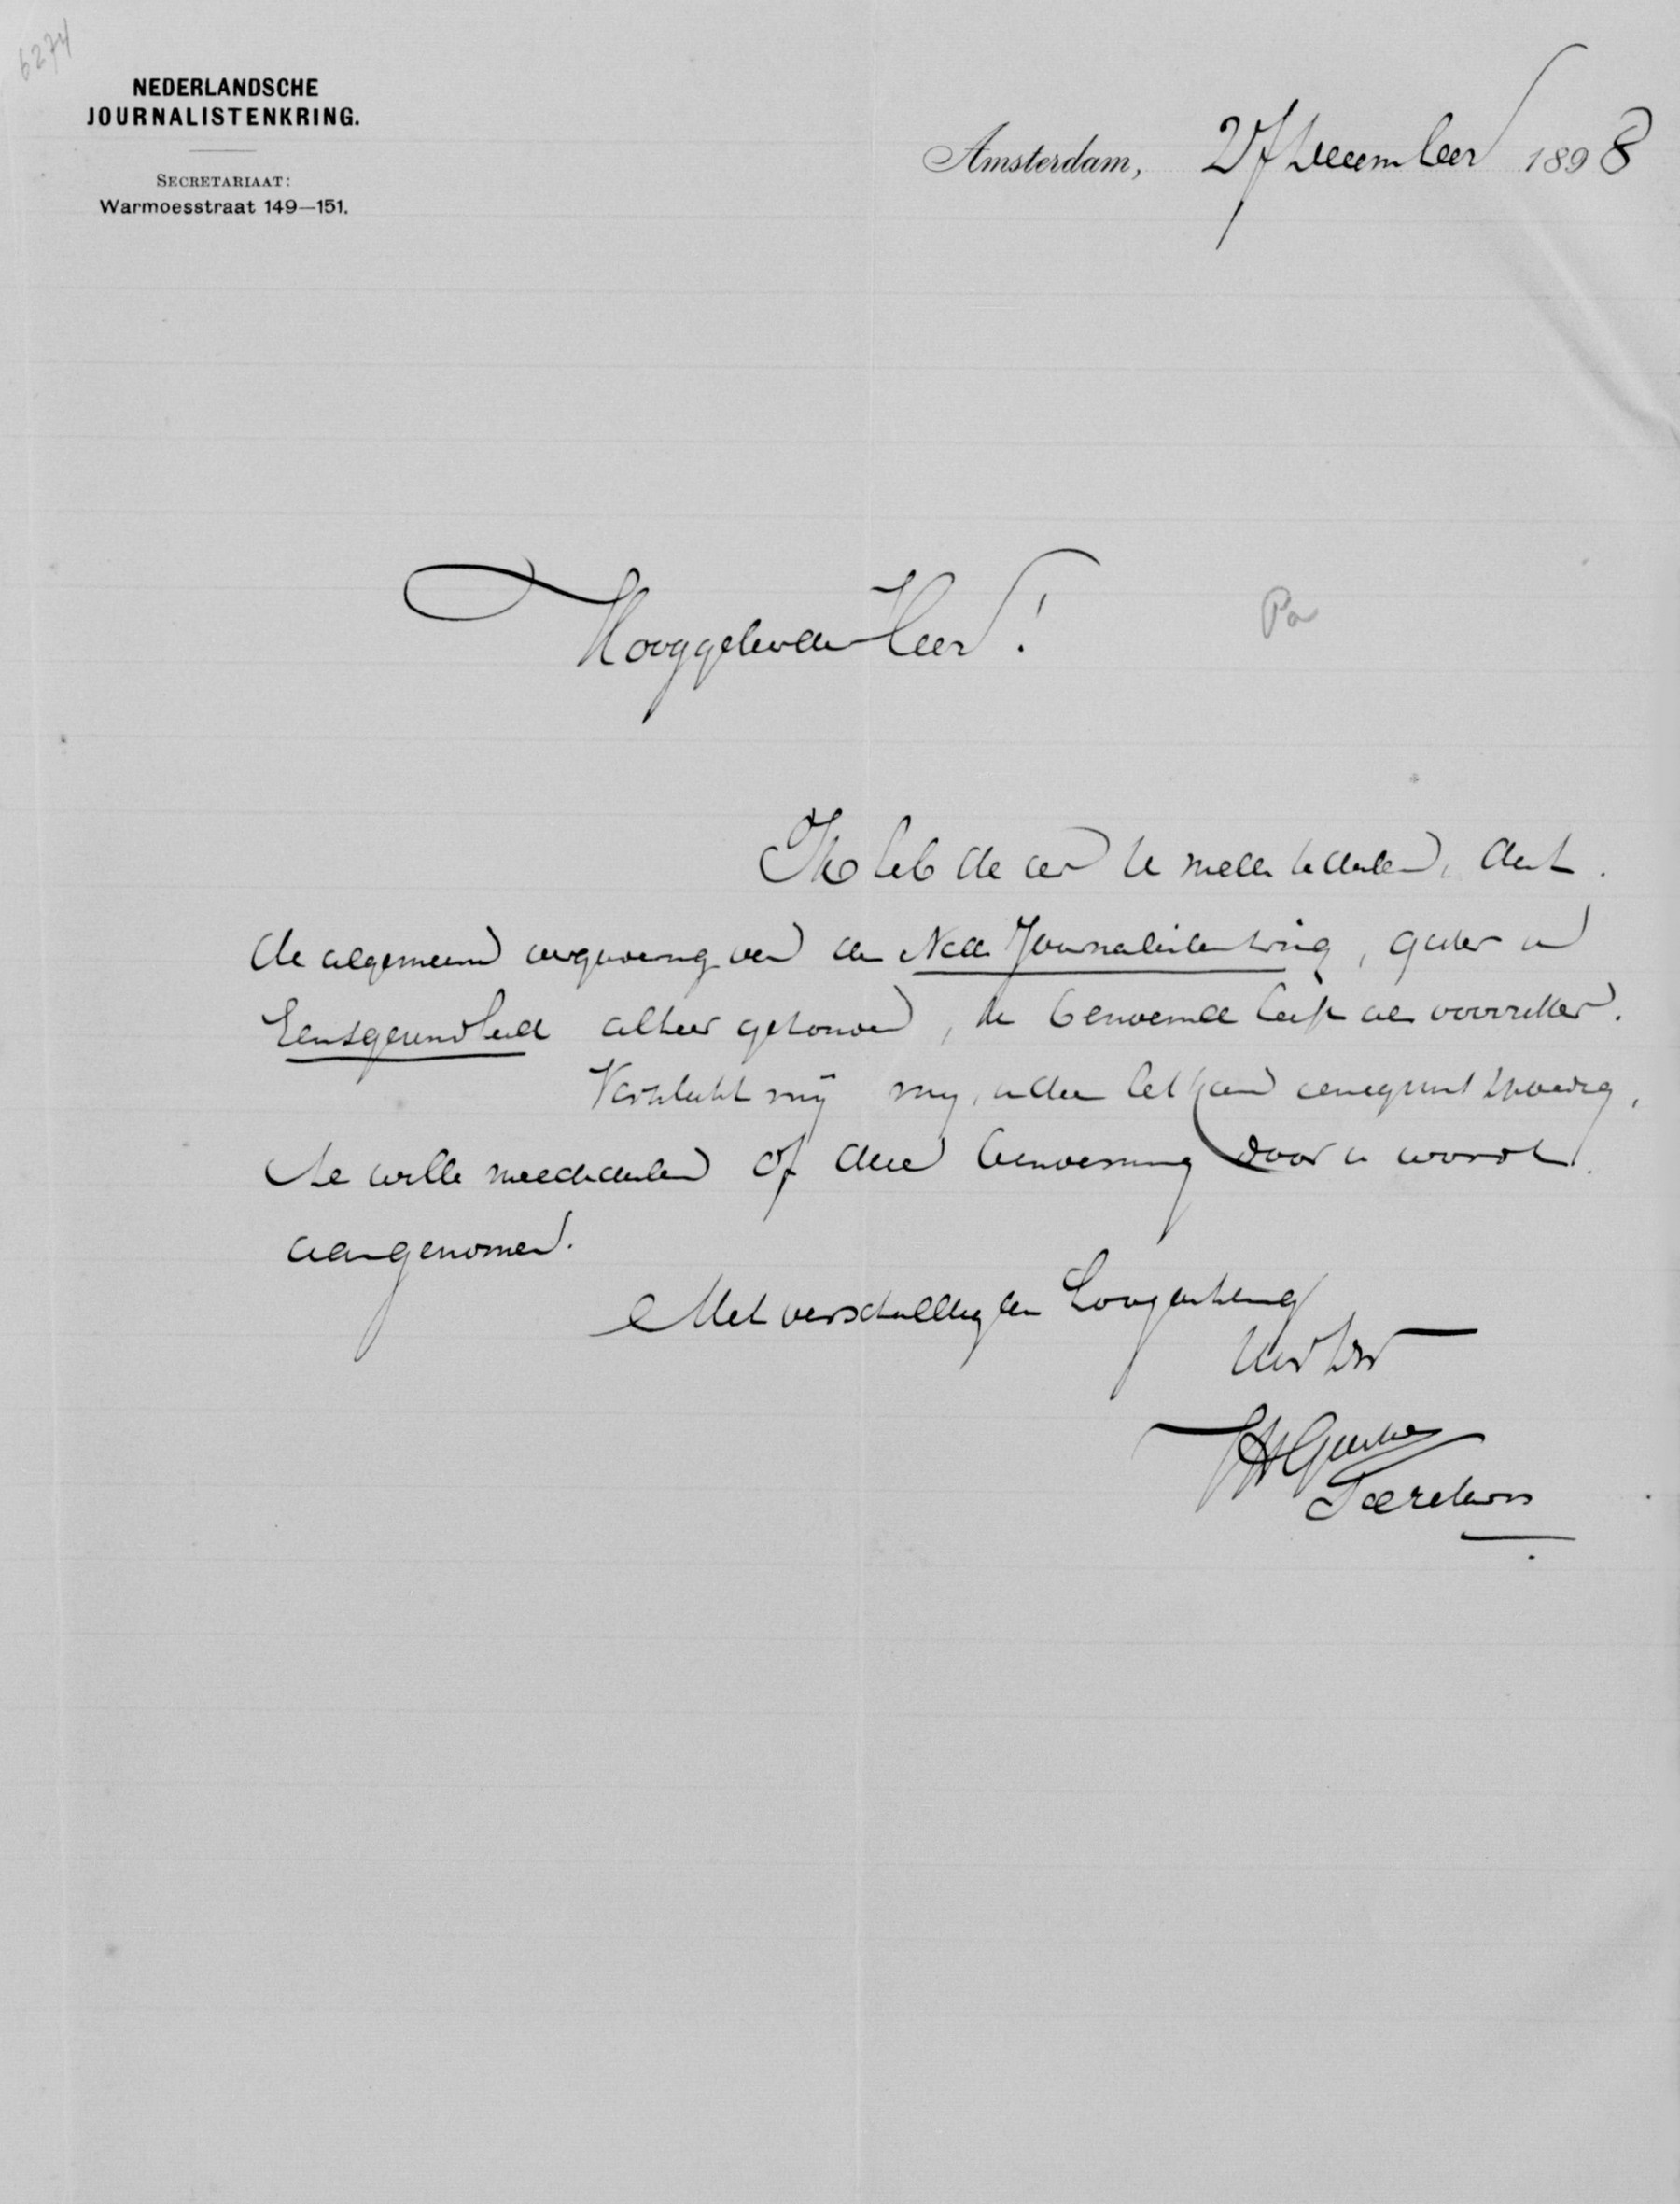 6274
NEDERLANDSCHE
JOURNALISTENKRING.
SECRETARIAAT:
Warmoesstraat 149—151.
Amsterdam, 27 December 1898
Hooggeleerde Heer!
Pa
Ik heb de eer U mede te deelen, dat
de algemeene vergadering van den Ned. Journalistenkring, gister in
Eensgezindheid alhier gehouden, U benoemde heeft als voorzitter.
mij, onder het
te willen mededeelen of deze benoeming door u wordt
aangenomen.
Met verschuldigden hoogachting
Uw dw
Secretaris